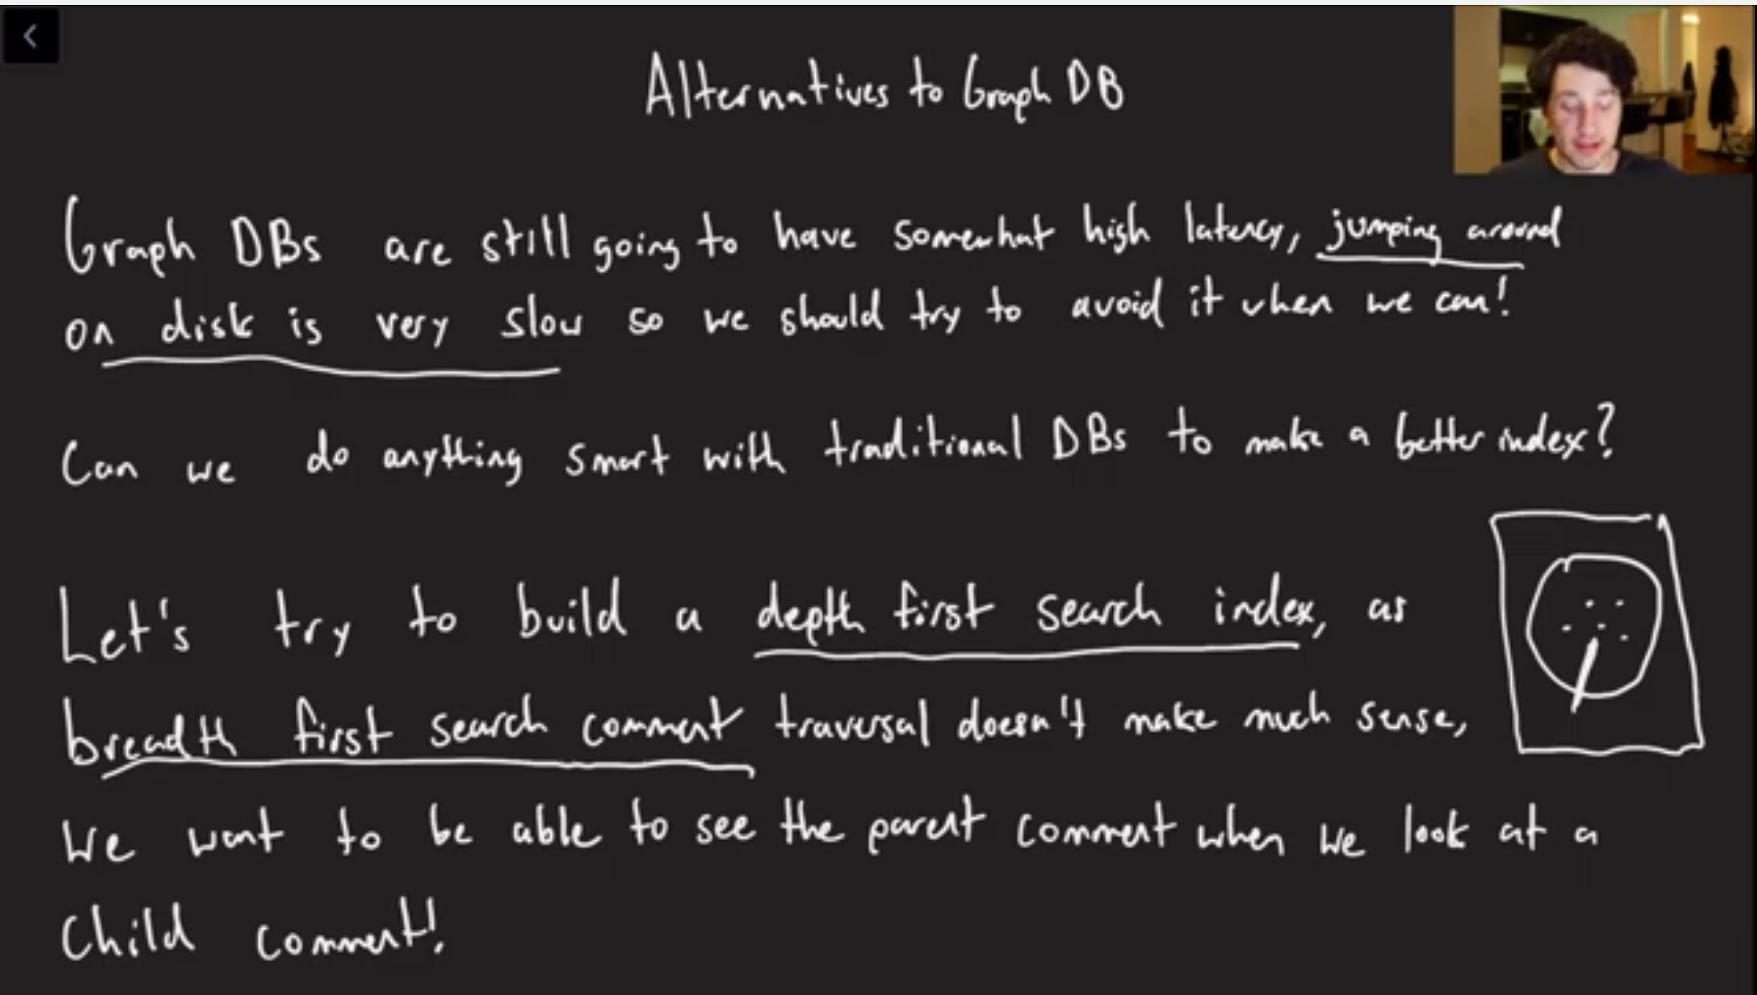 Alternatives to Graph DB
Graph DBs are still going to have somewhat high latency, jumping around
on disk is very slow so we should try to avoid it when we can!
Can we do anything smart with traditional DBs to make a better index?
Let's try to build a depth first search index, as
breadth first search comment traversal doesn't make much sense,
we want to be able to see the parent comment when we look at a
child comment!